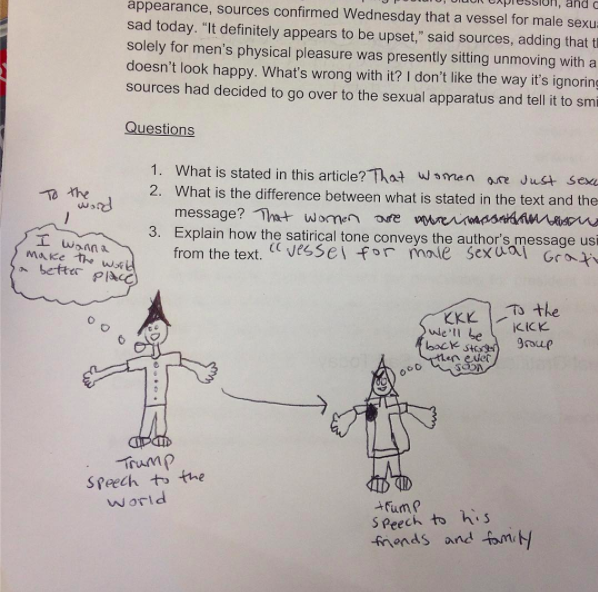 appearance, sources confirmed Wednesday that a vessel for male sexu
sad today. “It definitely appears to be upset,” said sources, adding that t
solely for men’s physical pleasure was presently sitting unmoving with a
doesn’t look happy. What’s wrong with it? I don’t like the way it’s ignoring
sources had decided to go over to the sexual apparatus and tell it to smi
Questions
1. What is stated in this article? That women are Just sexu
2. What is the difference between what is stated in the text and the
message? That women are
3. Explain how the satirical tone conveys the author’s message usi
from the text. “vessel for male sexual Grati
To the
word
I wanna
make the world
a better place
KKK
We'll be
back
then ever
soon
To the
KKK
group
Trump
speech to the
world
trump
speech to his
friends and family